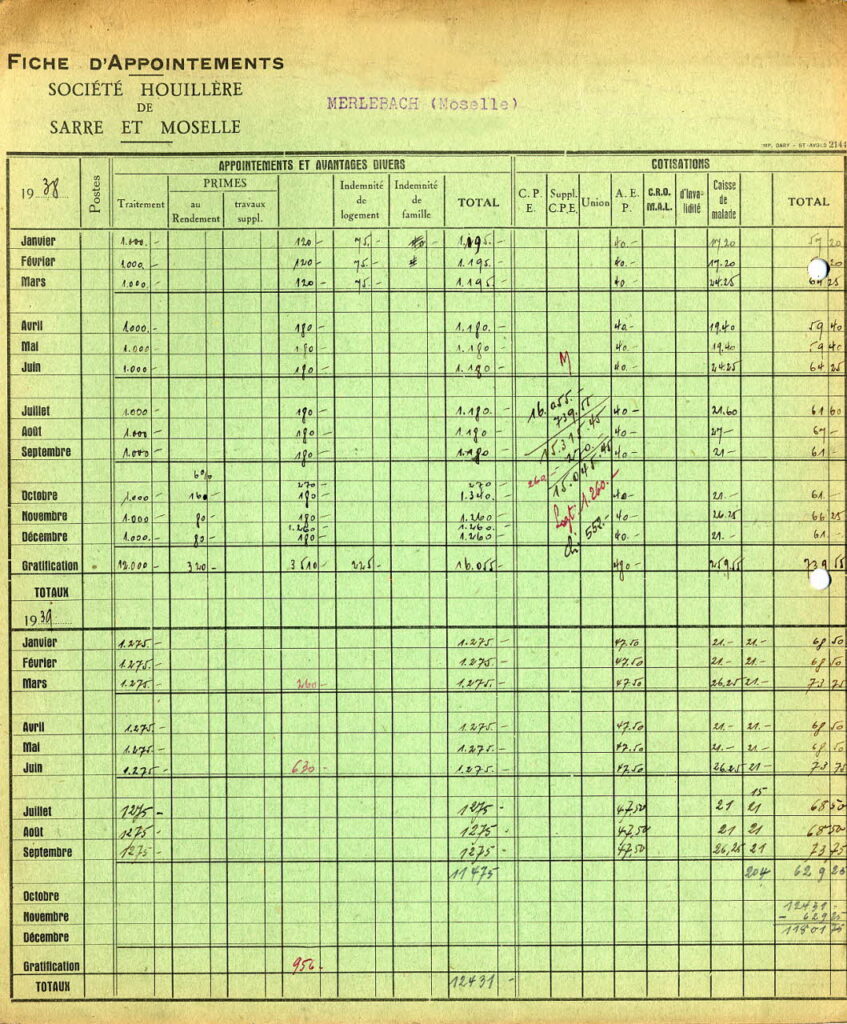 FICHE D'APPOINTEMENTS
SOCIÉTÉ HOUILLÈRE
DE
SARRE ET MOSELLE
MERLEBACH (Moselle)
IMP. DARY - ST-AVOLD 2144
APPOINTEMENTS ET AVANTAGES DIVERS COTISATIONS
1938 Postes Traitement PRIMES au Rendement travaux suppl. Indemnité de logement Indemnité de famille TOTAL C. P. E. Suppl. C.P.E. Union A. E. P. C.R.O. M.A.L. d'Invalidité Caisse de maladie TOTAL
Janvier 1.000.- 120 - 75.- 1.195.- 40.- 17.20 57 20
Février 1.000.- 120 - 75.- 1.195.- 40.- 17.20 20
Mars 1.000.- 120 - 75.- 1.195.- 40.- 24.25 64 25
Avril 1.000.- 180 - 1.180.- 40.- 19.40 59 40
Mai 1.000.- 180 - 1.180.- 40.- 19.40 59 40
Juin 1.000.- 180 - 1.180.- 40.- 24.25 64 25
M
Juillet 1.000 180 - 1.180.- 40 - 21.60 61 60
Août 1.000 180 - 1.180.- 40 - 27 - 67 -
Septembre 1.000.- 180 - 1.180 - 40 - 21 - 61 -
16.055.-
739.55
15.315.45
270.-
15.045.45
260 -
Logt 1.260.-
552.-
6% 270 270
Octobre 1.000 - 160 - 180 - 1.340.- 40 - 21.- 61 -
Novembre 1.000 - 80 - 180 - 1.260 - 40 - 26.25 66 25
1.260 - 1.260 -
Décembre 1.000.- 80 - 180 - 1.260 - 40.- 21.- 61 -
Gratification 12.000 - 320 - 3510 - 225 - 16.055 - 480 - 259.55 739 55
TOTAUX
1939
Janvier 1.275.- 1.275 - 47.50 21.- 21.- 68 50
Février 1.275.- 1.275.- 47.50 21.- 21.- 68 50
Mars 1.275.- 260 - 1.275.- 47.50 26.25 21.- 73 75
Avril 1.275.- 1.275.- 47.50 21.- 21.- 68 50
Mai 1.275.- 1.275.- 47.50 21.- 21.- 68 50
Juin 1.275 - 630 - 1.275.- 47.50 26.25 21 - 73 75
15
Juillet 1275 - 1275 - 47,50 21 21 68 50
Août 1275 - 1275 - 47,50 21 21 68 50
Septembre 1275 - 1275 - 47,50 26,25 21 73 75
11475 204 629 25
Octobre
12431 -
Novembre - 629 25
Décembre 11801 75
Gratification 956.-
TOTAUX 12431 -